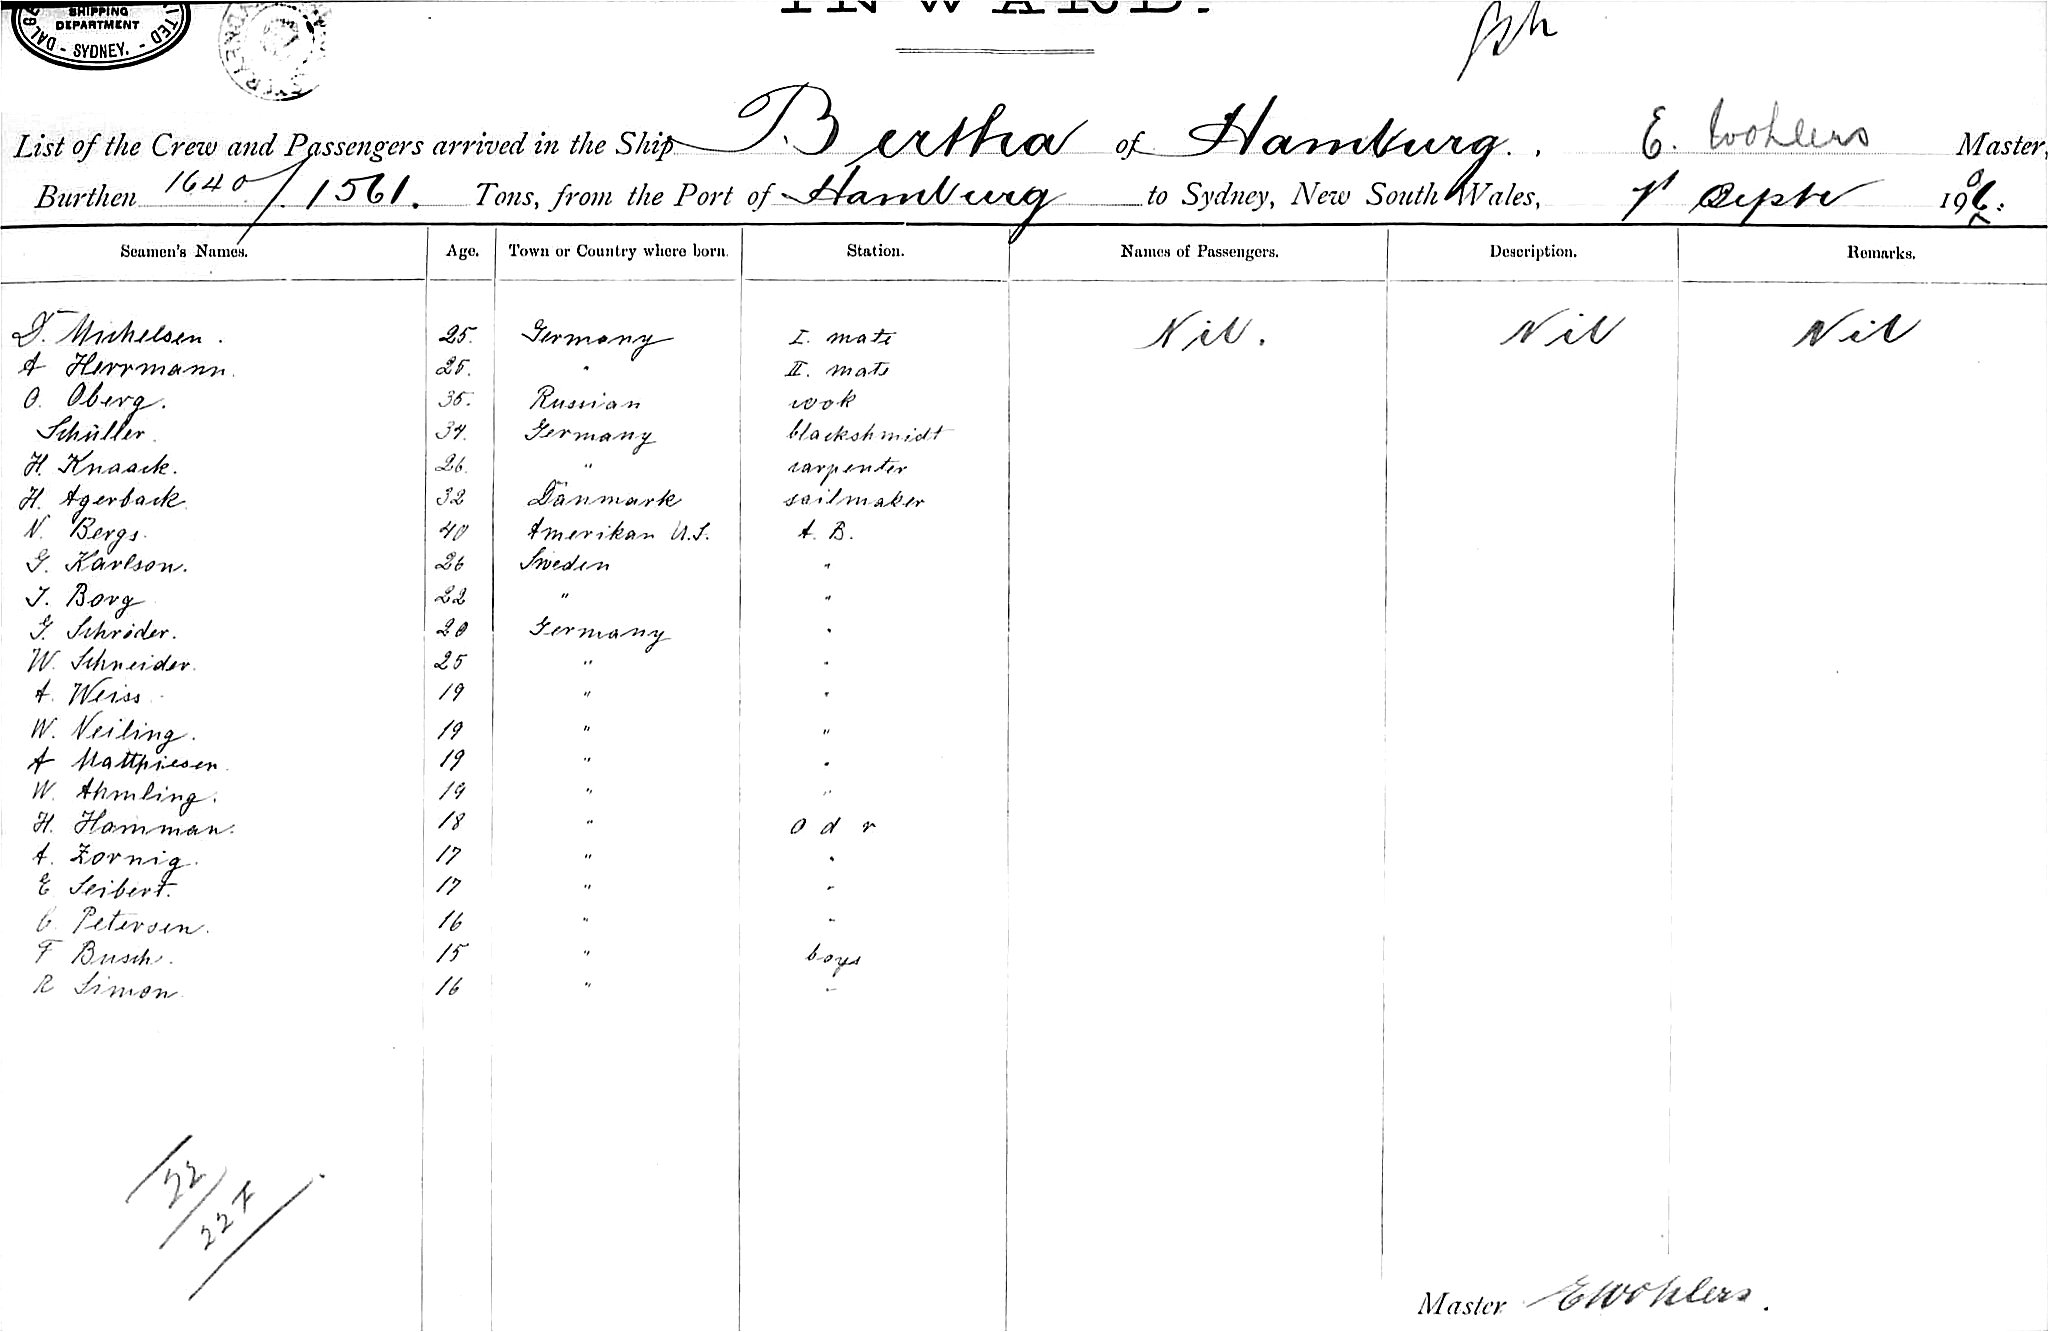 SHIPPING
DEPARTMENT
SYDNEY.
INWARD.
List of the Crew and Passengers arrived in the Ship Bertha of Hamburg. E. Wohlers Master,
Burthen 1640/1561. Tons, from the Port of Hamburg to Sydney, New South Wales, 1st Septr 190
Seamen's Names. Age. Town or Country where born. Station. Names of Passengers. Description. Remarks.
D. Michelsen. 25. Germany I. mate Nil. Nil Nil
A Herrmann. 25. " II. mate
O. Oberg. 35. Russian cook
Schüller. 34. Germany blackshmidt
H. Knaack. 26. " carpenter
H. Agerback 32 Dänmark sailmaker
N. Bergs. 40 Amerikan U.S. A. B.
G. Karlson. 26 Sweden "
J. Borg 22 " "
G. Schröder. 20 Germany "
W. Schneider. 25 " "
A. Weiss 19 " "
W. Neiling. 19 " "
A Matthiesen. 19 " "
W. Ahmling. 19 " "
H. Hamman. 18 " o d r
A. Zornig. 17 " "
E Seibert. 17 " "
C. Petersen. 16 " "
F Busch. 15 " boys
R Simon. 16 " "
22
22 +
Master E Wohlers.